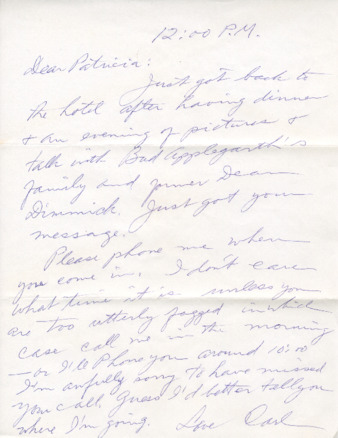 12:00 P.M.
Dear Patricia:
Just got back to
the hotel after having dinner
& an evening of pictures &
talk with Bud Applegarth's
family and former Dean
Dimmick. Just got your
message.
Please phone me when
you come in. I don't care
what time it is unless you
are too utterly fagged in which
case call me in the morning
— or I'll Phone you around 10:00
I'm awfully sorry to have missed
your call. Guess I'd better tell you
where I'm going. Love Carl